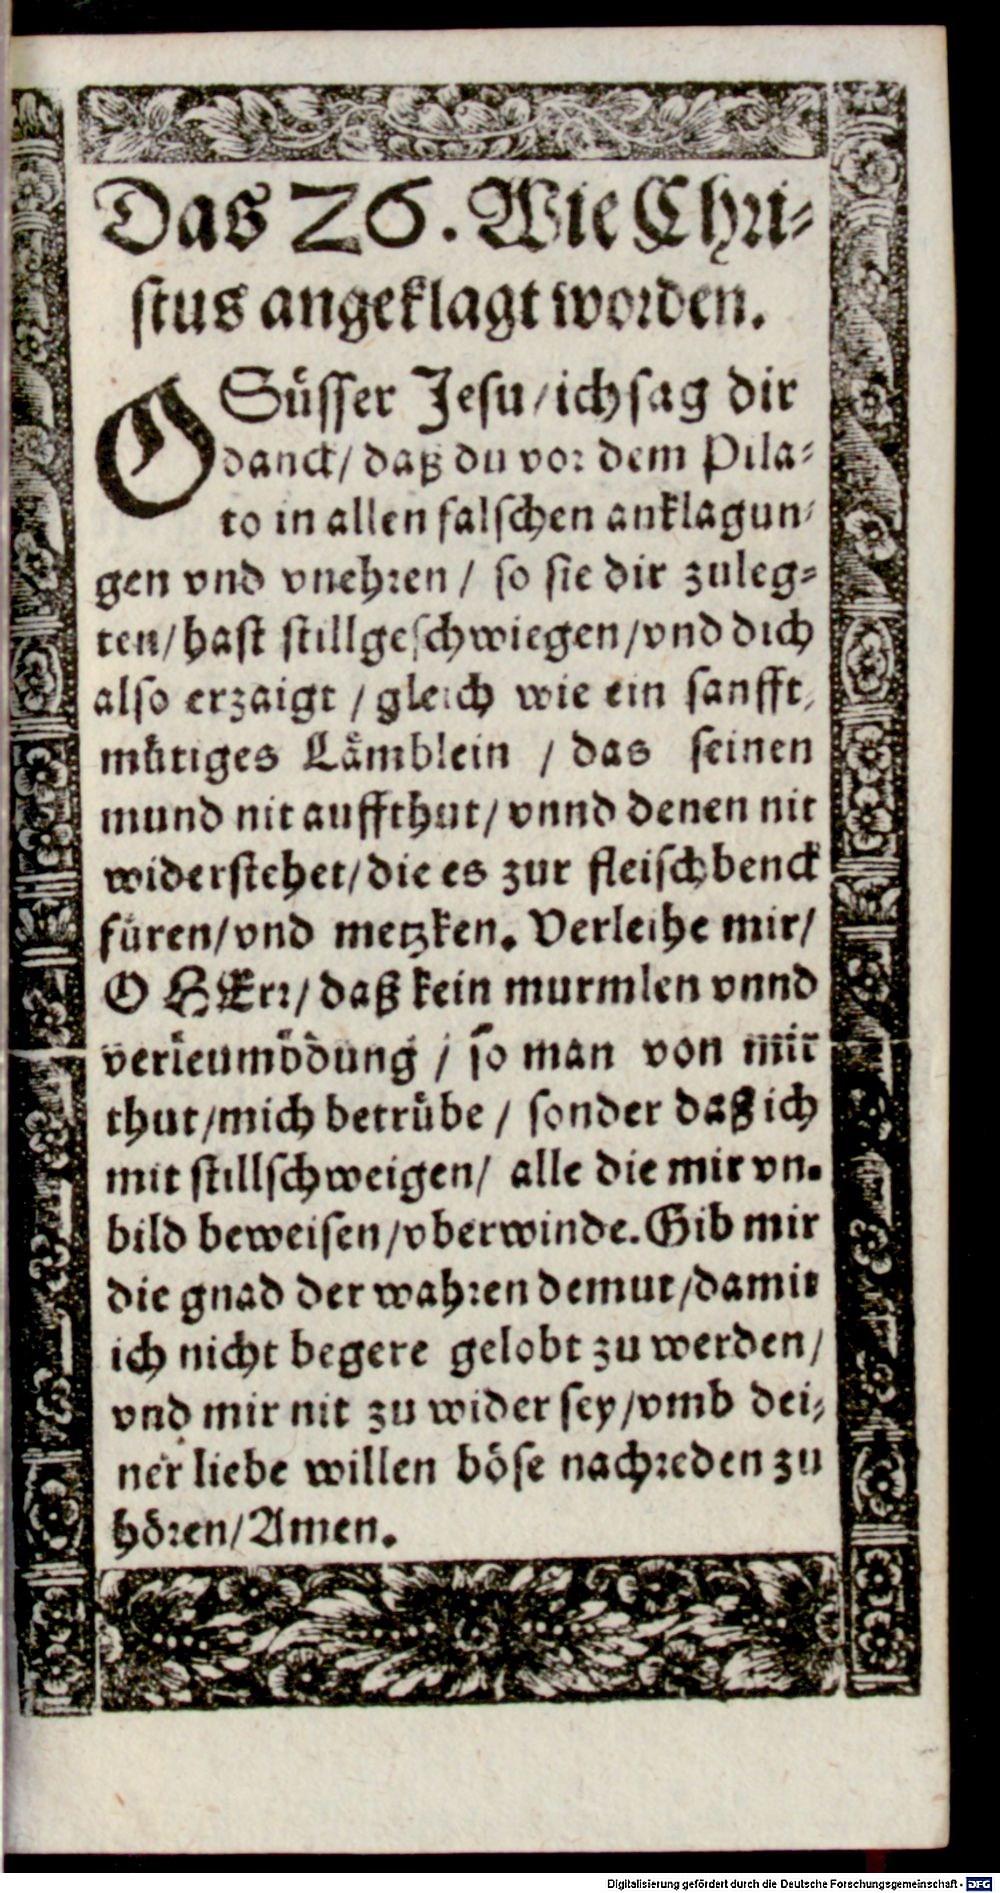 Das 26. Wie Chri-
stus angeklagt worden.
O Süsser Jesu/ich sag dir
danck/ daß du vor dem Pila-
to in allen falschen anklagun-
gen vnd vnehren / so sie dir zuleg-
ten/hast stillgeschwiegen/vnd dich
also erzaigt / gleich wie ein sanfft-
mütiges Lämblein / das seinen
mund nit auffthut/ vnnd denen nit
widerstehet/die es zur fleischbenck
füren/vnd metzken. Verleihe mir/
O HErr/daß kein murmlen vnnd
verleumbdung / so man von mir
thut/mich betrübe / sonder daß ich
mit stillschweigen/ alle die mir vn-
bild beweisen/vberwinde. Gib mir
die gnad der wahren demut/damit
ich nicht begere gelobt zu werden/
vnd mir nit zu wider sey/vmb dei-
ner liebe willen böse nachreden zu
hören/Amen.
Digitalisierung gefördert durch die Deutsche Forschungsgemeinschaft - DFG